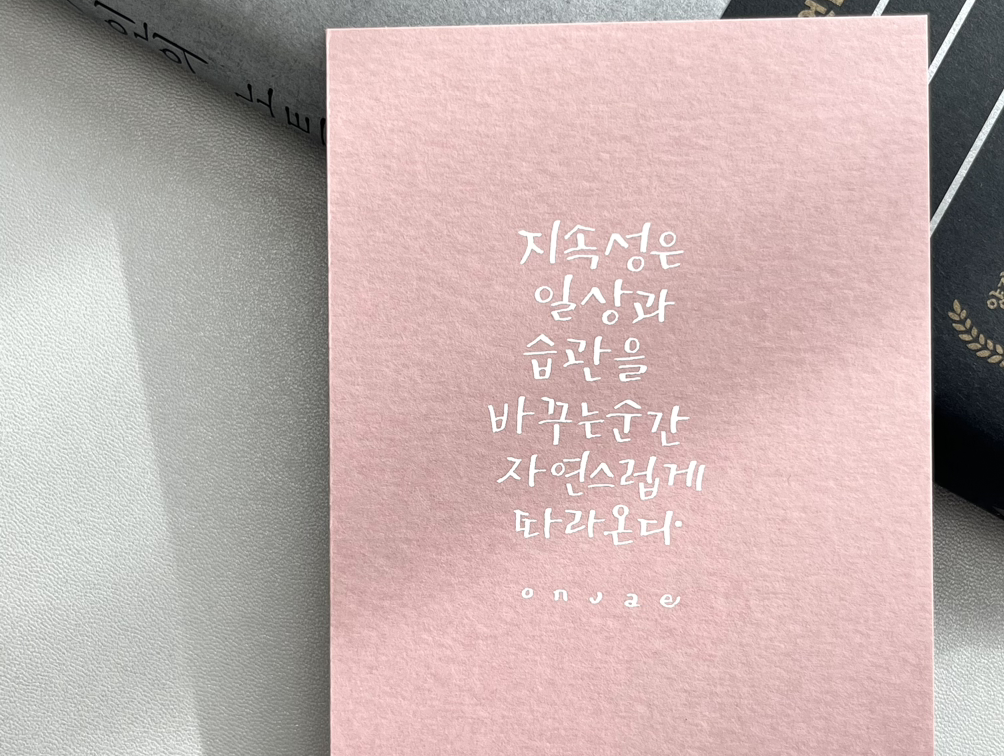 지속성은
일상과
습관을
바꾸는 순간
자연스럽게
따라온다.
onjae